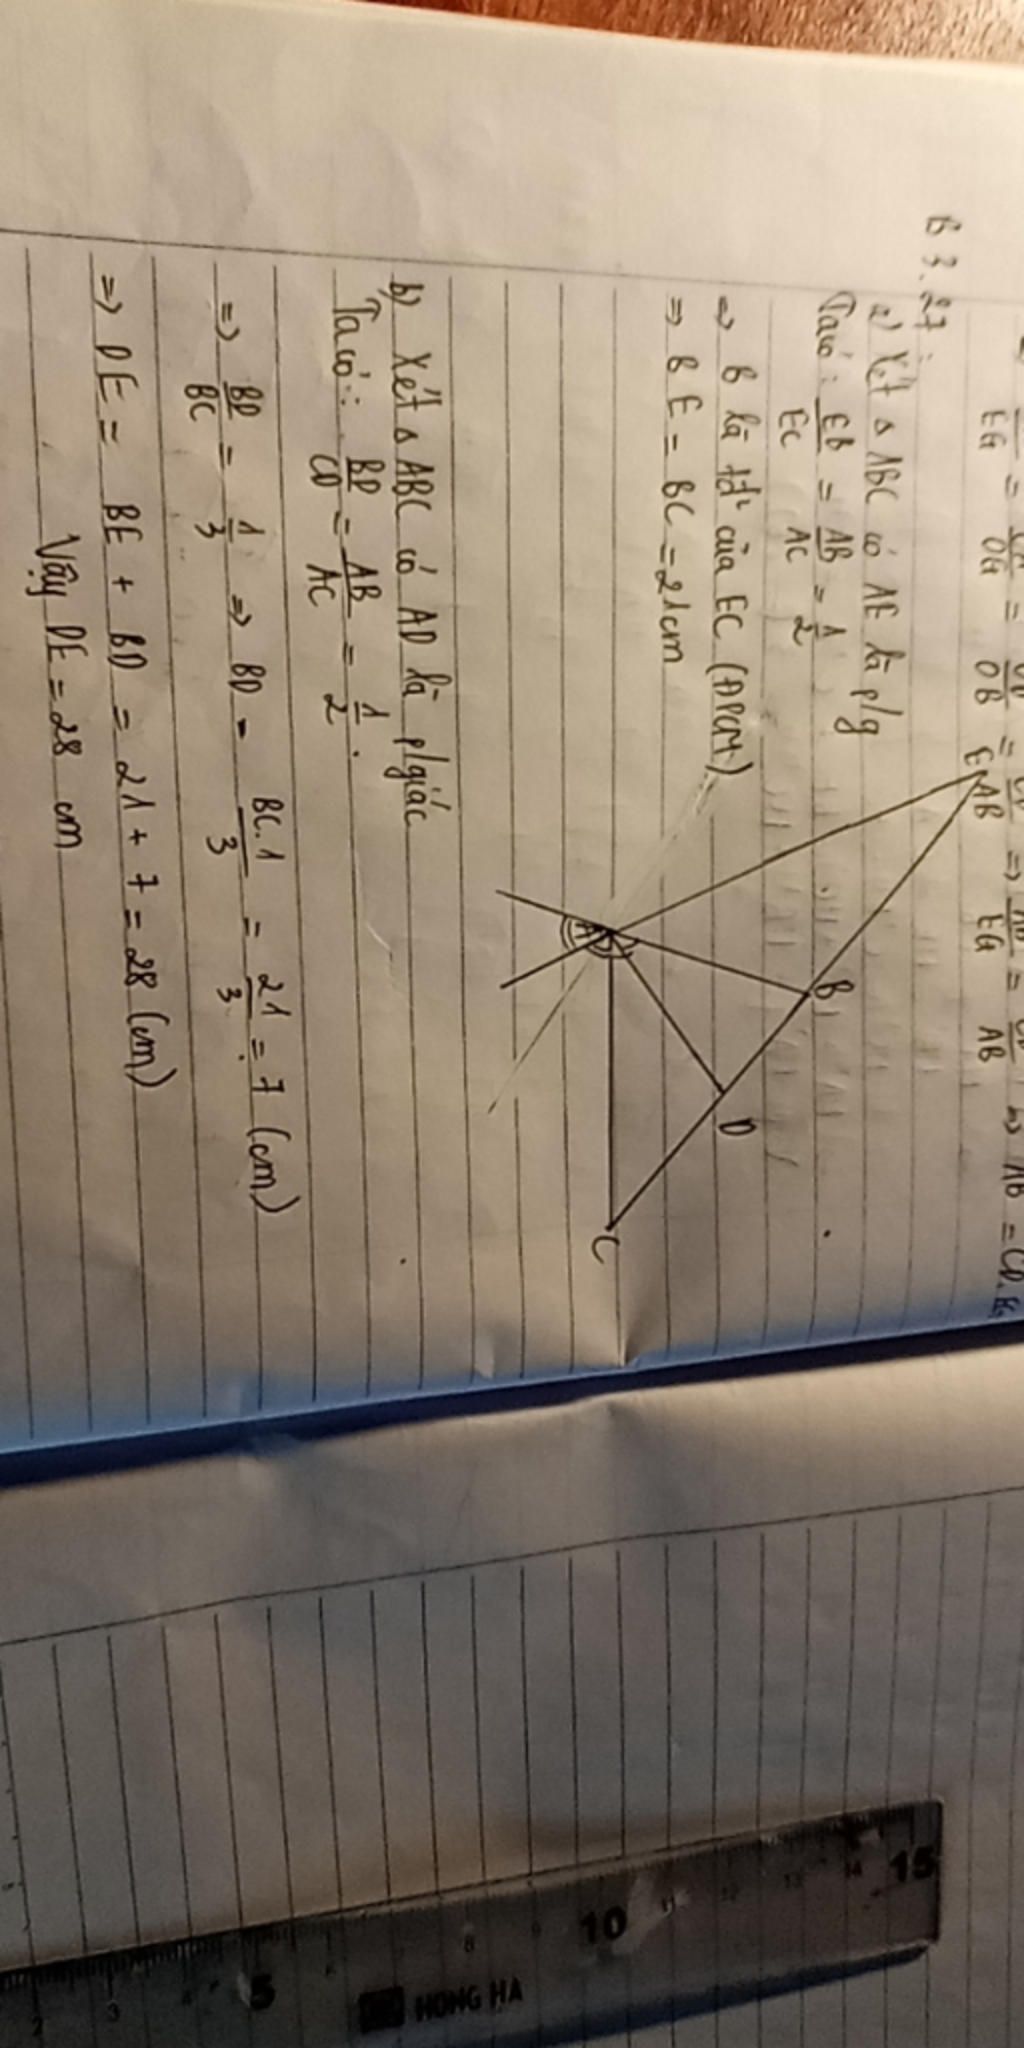 EG = OG = OB = => EG = AB => AB = CD.
B 3.27:
a) Xét Δ ABC có AE là p/g
Ta có: EB/EC = AB/AC = 1/2
=> B là tđ² của EC (ĐPCM)
=> BE = BC = 21cm
E
B
D
A
C
b) Xét Δ ABC có AD là p/giác
Ta có: BD/CD = AB/AC = 1/2.
=> BD/BC = 1/3 => BD = BC.1/3 = 21/3 = 7 (cm)
=> DE = BE + BD = 21 + 7 = 28 (cm)
Vậy DE = 28 cm
2 3 5 8 10 11 12 13 14 15
HONG HA